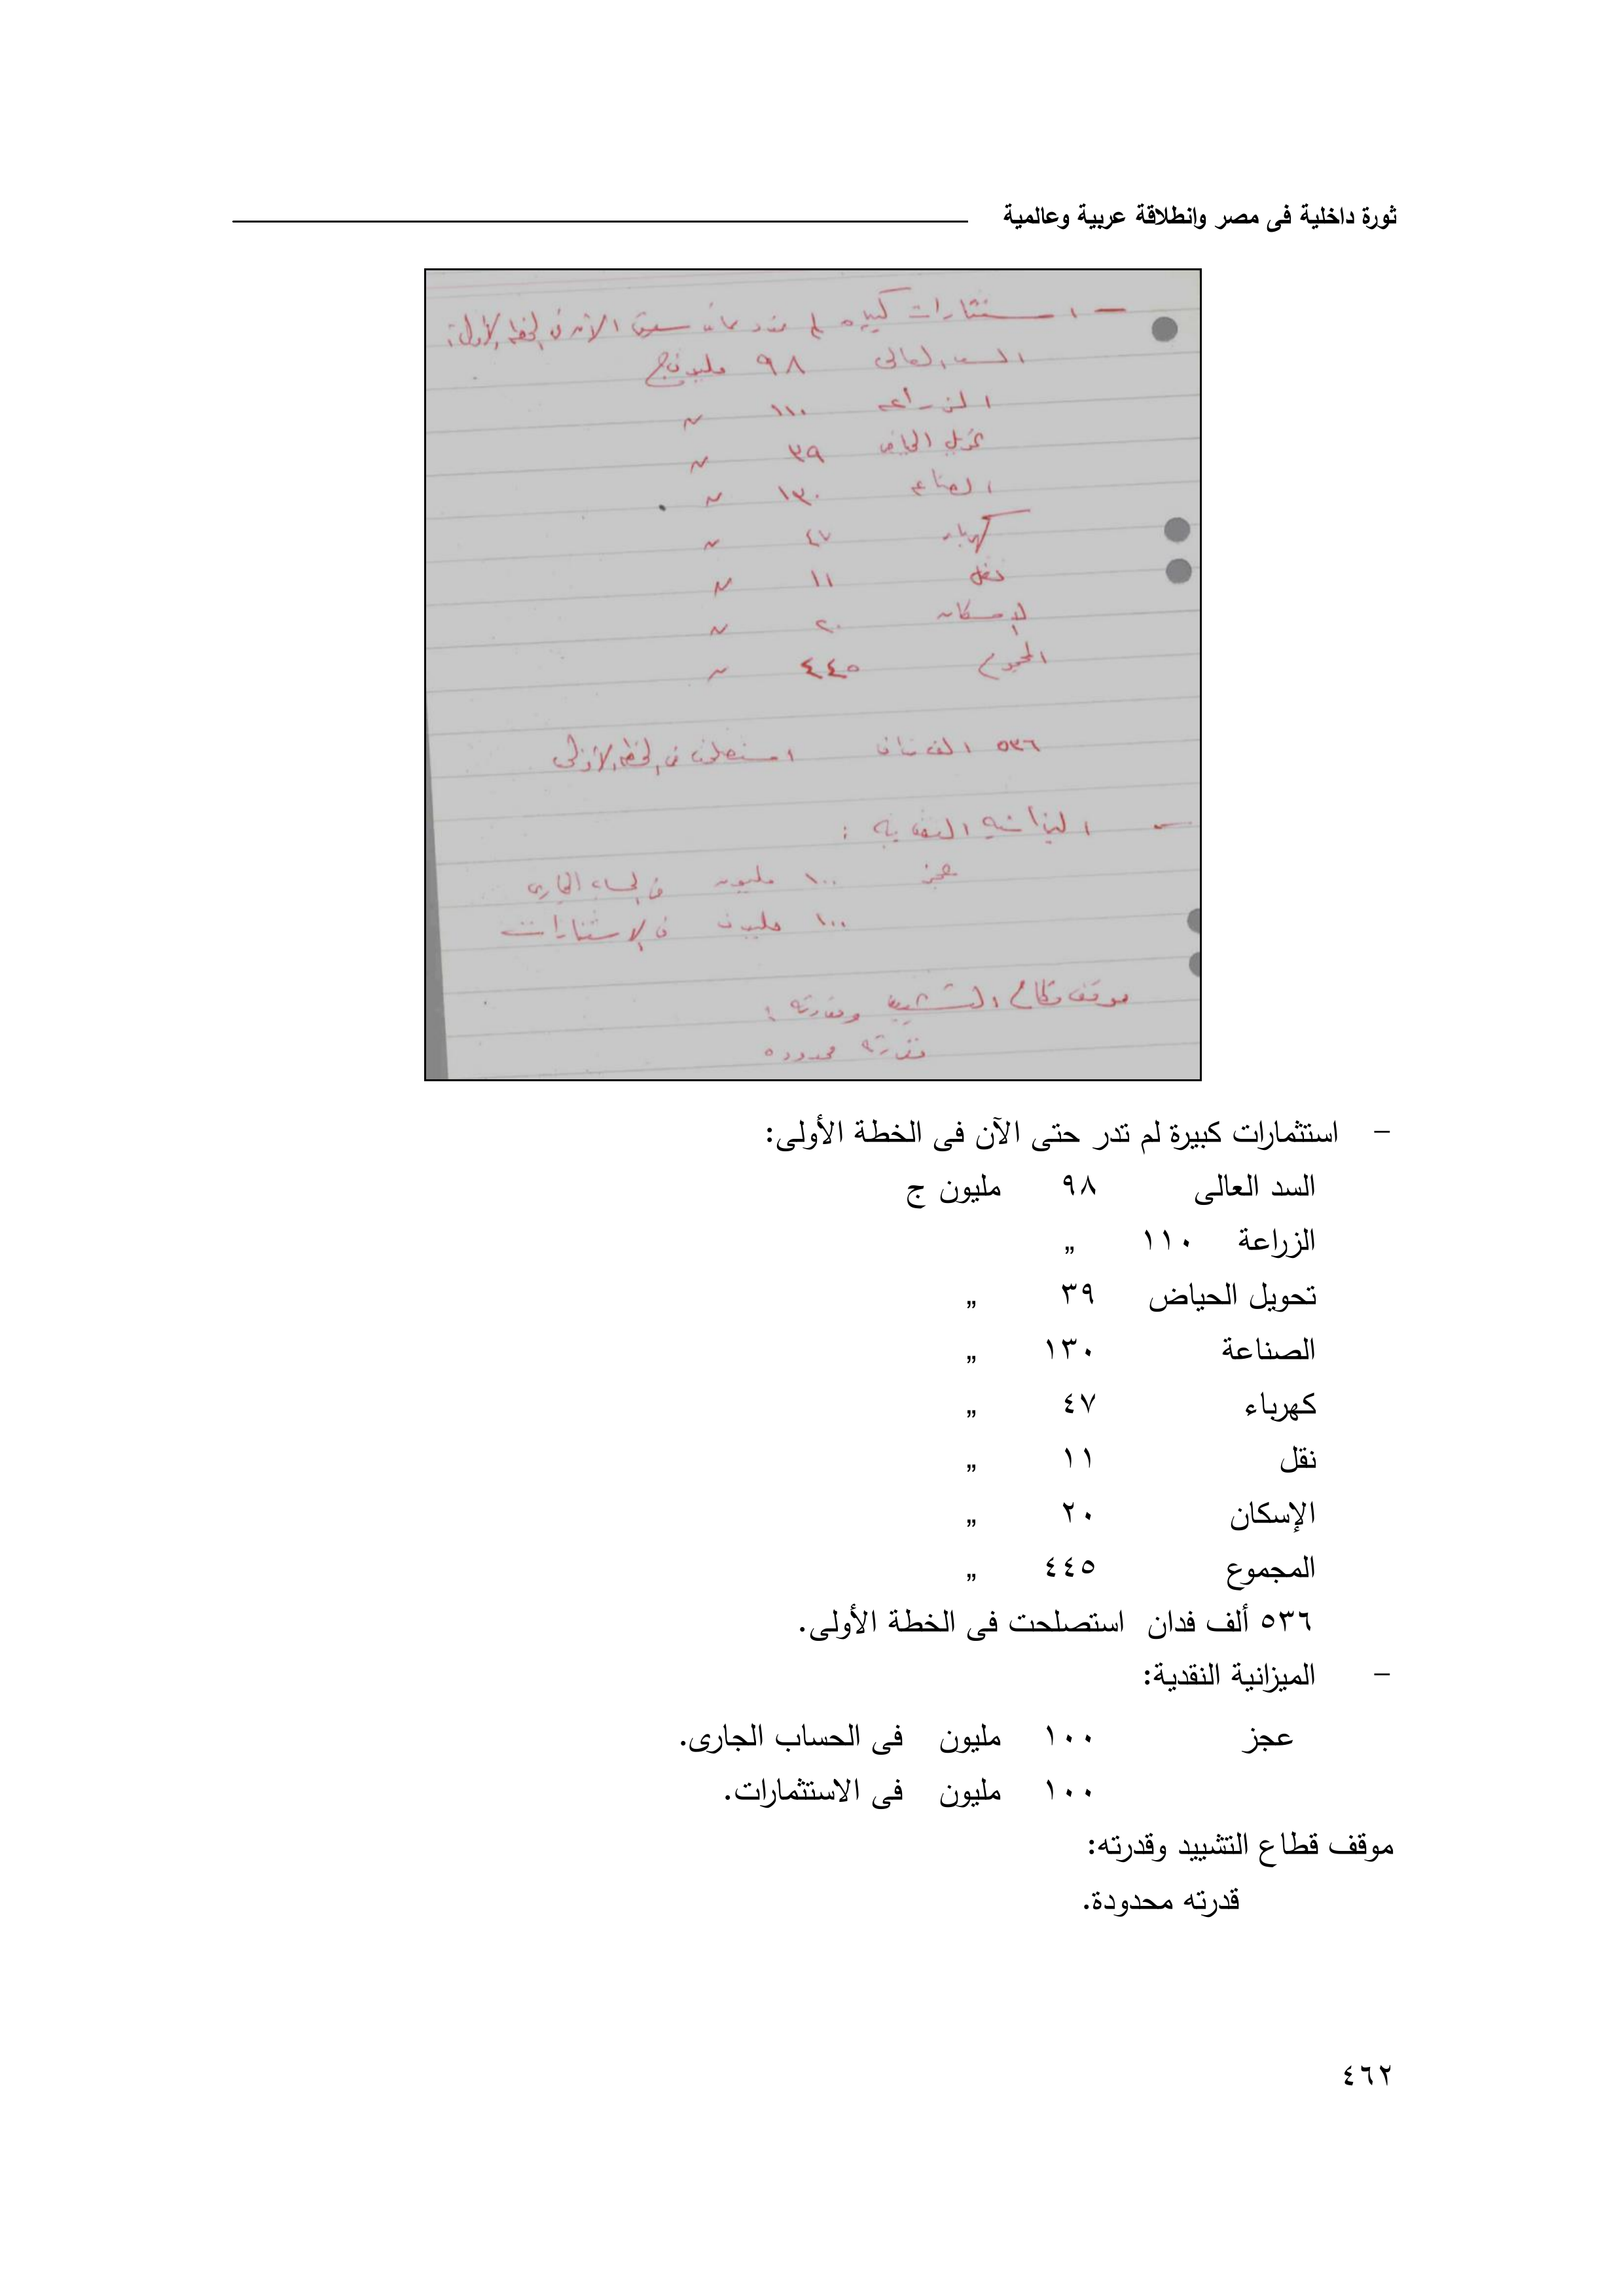 ثورة داخلية فى مصر وانطلاقة عربية وعالمية
– استثمارات كبيره لم تدر حتى الآن فى الخطه الأولى:
السد العالى ٩٨ مليون ج
الزراعه ١١٠ "
تحويل الحياض ٣٩ "
الصناعه ١٣٠ "
كهرباء ٤٧ "
نقل ١١ "
الإسكان ٢٠ "
المجموع ٤٤٥ "
٥٣٦ الف فدان استصلحت فى الخطه الأولى
– الميزانيه النقديه :
عجز ١٠٠ مليون فى الحساب الجارى
١٠٠ مليون فى الاستثمارات
موقف قطاع التشييد وقدرته :
قدرته محدوده
– استثمارات كبيرة لم تدر حتى الآن فى الخطة الأولى:
السد العالى ٩٨ مليون ج
الزراعة ١١٠ „
تحويل الحياض ٣٩ „
الصناعة ١٣٠ „
كهرباء ٤٧ „
نقل ١١ „
الإسكان ٢٠ „
المجموع ٤٤٥ „
٥٣٦ ألف فدان استصلحت فى الخطة الأولى.
– الميزانية النقدية:
عجز ١٠٠ مليون فى الحساب الجارى.
١٠٠ مليون فى الاستثمارات.
موقف قطاع التشييد وقدرته:
قدرته محدودة.
٤٦٢